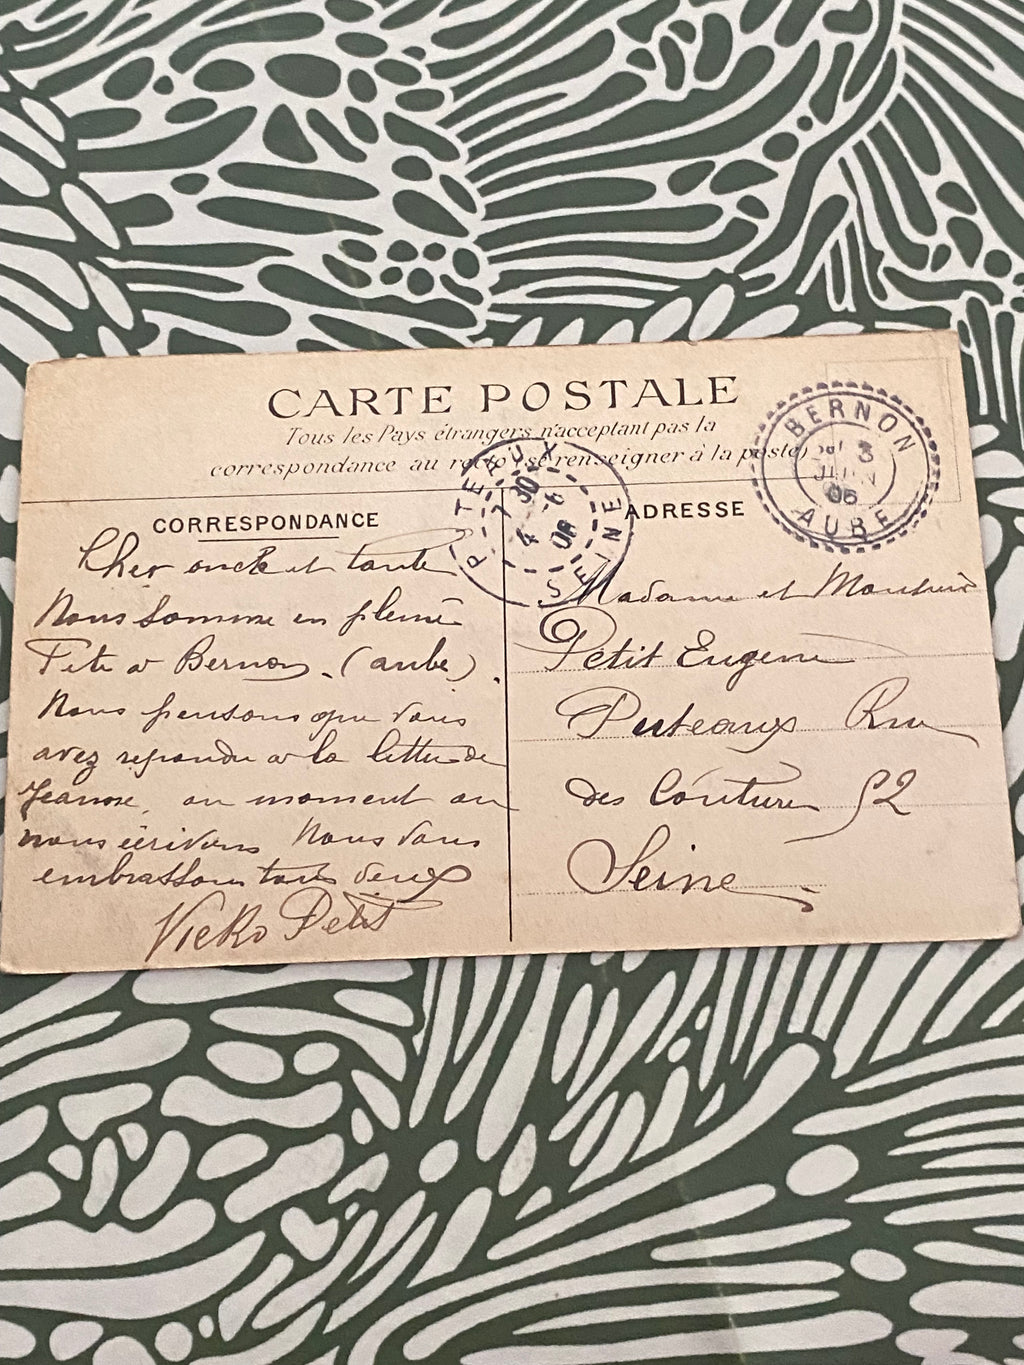 CARTE POSTALE
Tous les Pays étrangers n'acceptant pas la
correspondance au recto (se renseigner à la poste)
BERNON
3
JUIN
06
AUBE
PUTEAUX
7 30
4 - 6
06
SEINE
CORRESPONDANCE
Cher oncle et tante
Nous somme en pleine
Fete a Bernon. (aube).
Nous pensons que vous
avez repondu a la lettre de
Jeanne, au moment ou
nous écrivons Nous vous
embrassons tous deux
Petit
ADRESSE
Madame et Monsieur
Petit Eugene
Puteaux Rue
des Couture 52
Seine